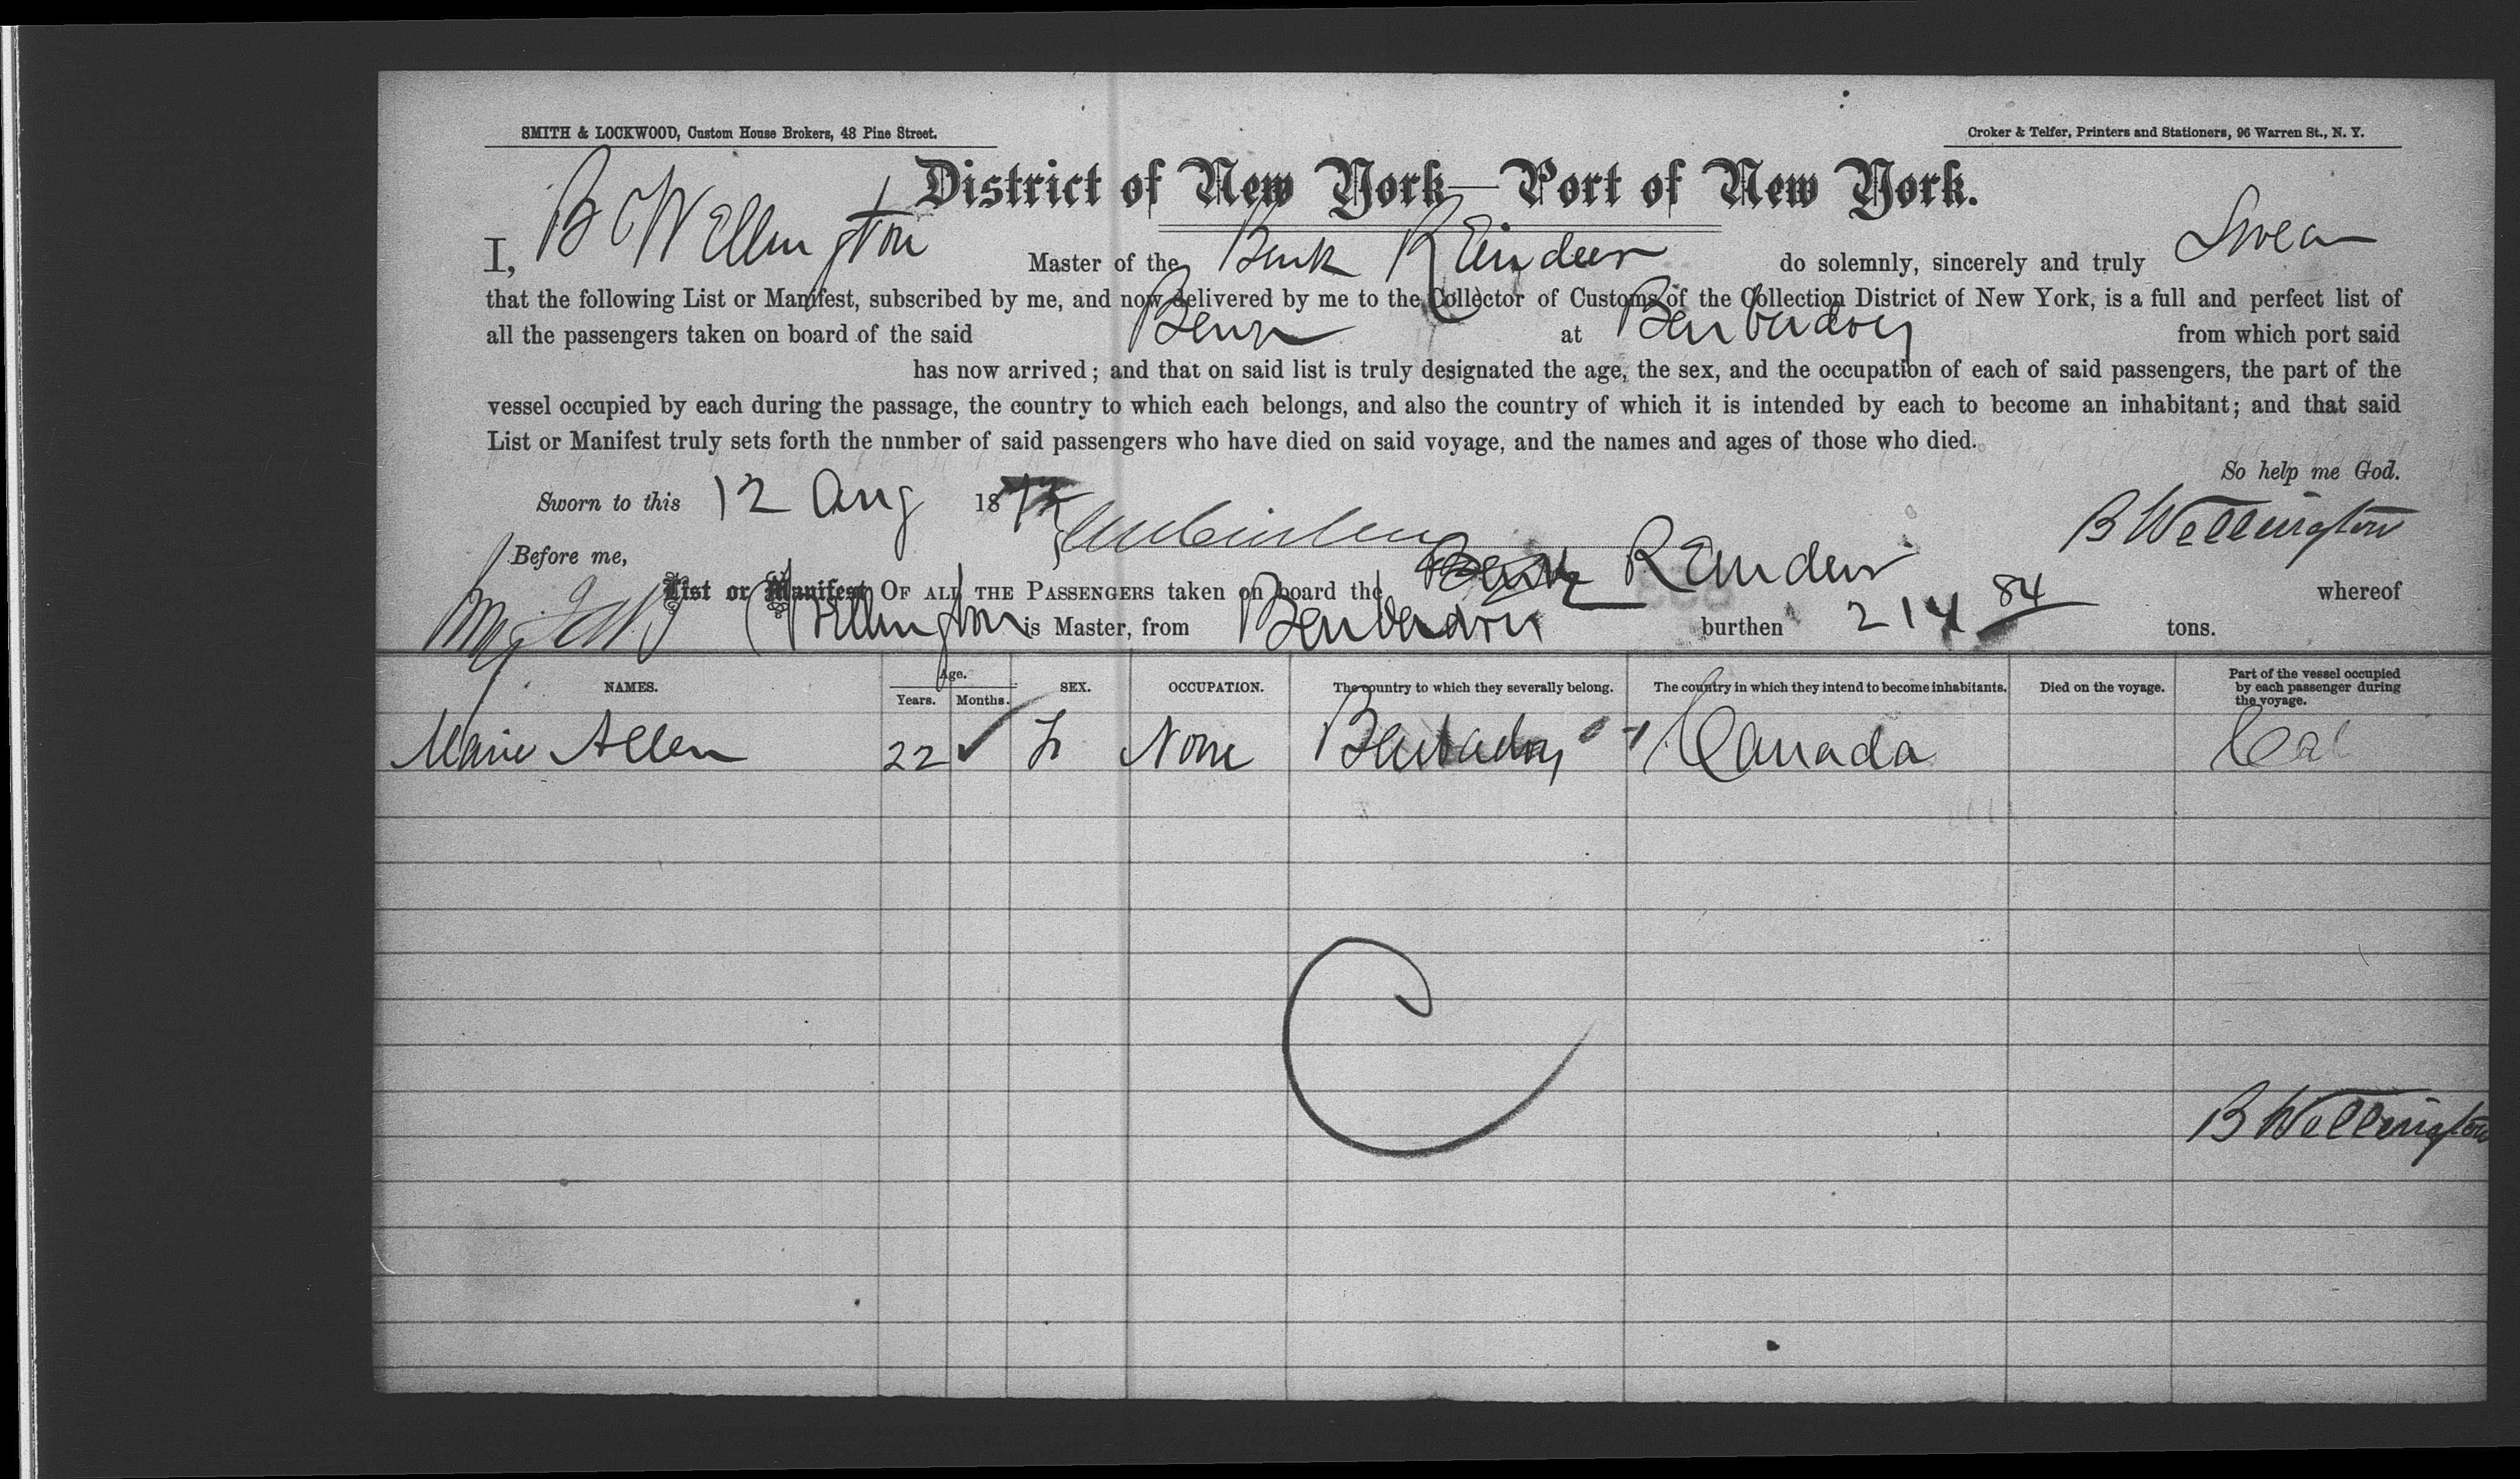 SMITH & LOCKWOOD, Custom House Brokers, 48 Pine Street.
Croker & Telfer, Printers and Stationers, 96 Warren St., N. Y.
District of New York—Port of New York.
I, B Wellington Master of the Bark Reindeer do solemnly, sincerely and truly Swear
that the following List or Manifest, subscribed by me, and now delivered by me to the Collector of Customs of the Collection District of New York, is a full and perfect list of
all the passengers taken on board of the said Bark at Barbadoes from which port said
has now arrived; and that on said list is truly designated the age, the sex, and the occupation of each of said passengers, the part of the
vessel occupied by each during the passage, the country to which each belongs, and also the country of which it is intended by each to become an inhabitant; and that said
List or Manifest truly sets forth the number of said passengers who have died on said voyage, and the names and ages of those who died.
So help me God.
Sworn to this 12 Aug 18
B Wellington
Before me,
List or Manifest OF ALL THE PASSENGERS taken on board the Bark Reindeer whereof
Wellington is Master, from Barbadoes burthen 214 84 tons.
NAMES. Age. Years. Months. SEX. OCCUPATION. The country to which they severally belong. The country in which they intend to become inhabitants. Died on the voyage. Part of the vessel occupied by each passenger during the voyage.
Marie Allen 22 ✓ F None Barbadoes Canada Cab
B Wellington